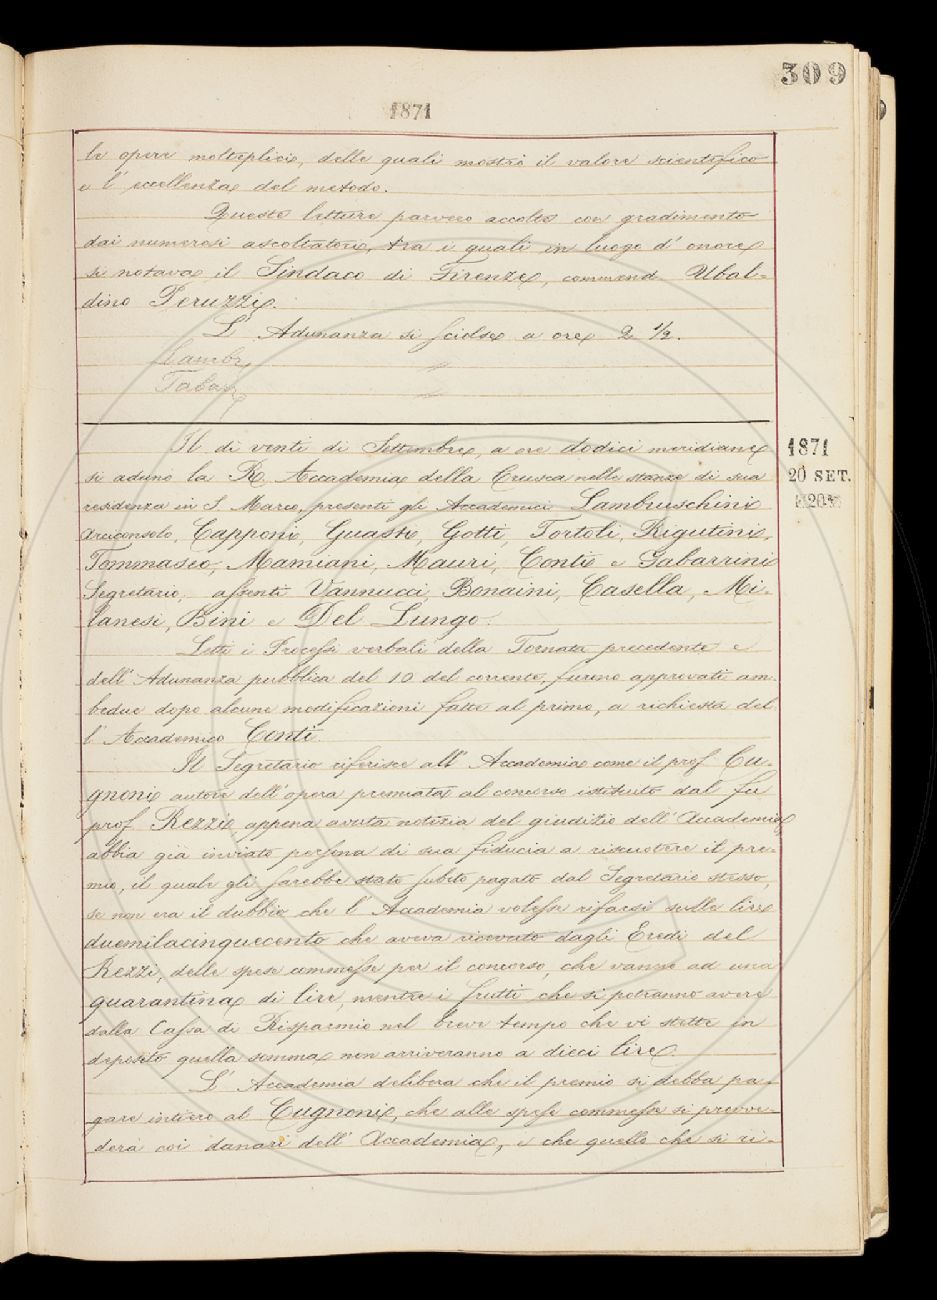 309
1871
le opere molteplici, delle quali mostrò il valore scientifico
e l' eccellenza del metodo.
Queste letture parvero accolte con gradimento
dai numerosi ascoltatori, tra i quali in luogo d' onore
si notava il Sindaco di Firenze, commend. Ubal-
dino Peruzzi.
L' Adunanza si sciolse a ore 2 1/2.
Lambr
Tabar
Il dì venti di Settembre, a ore dodici meridiane
1871
si adunò la R. Accademia della Crusca nelle stanze di sua
20 SET.
residenza in S. Marco, presenti gli Accademici Lambruschini
Arciconsolo, Capponi, Guasti, Gotti, Tortoli, Rigutini,
Tommaseo, Mamiani, Mauri, Conti e Tabarrini
Segretario; assenti Vannucci, Bonaini, Casella, Mi-
lanesi, Bini e Del Lungo.
Letti i Processi verbali della Tornata precedente e
dell' Adunanza pubblica del 10 del corrente, furono approvati am-
bedue dopo alcune modificazioni fatte al primo, a richiesta del-
l' Accademico Conti.
Il Segretario riferisce all' Accademia come il prof. Cu-
gnoni autore dell' opera premiata al concorso istituito dal fu
prof. Rezzi, appena avuta notizia del giudizio dell' Accademia
abbia già inviato persona di sua fiducia a riscuotere il pre-
mio, il quale gli sarebbe stato subito pagato dal Segretario stesso,
se non era il dubbio che l' Accademia volesse rifarsi sulle lire
duemilacinquecento che aveva ricevuto dagli Eredi del
Rezzi, delle spese commesse per il concorso, che vanno ad una
quarantina di lire, mentre i frutti che si potranno avere
dalla Cassa di Risparmio nel breve tempo che vi stette in
deposito quella somma non arriveranno a dieci lire.
L' Accademia delibera che il premio si debba pa-
gare intiero al Cugnoni, che alle spese commesse si provve-
derà coi danari dell' Accademia, e che quello che si ri-